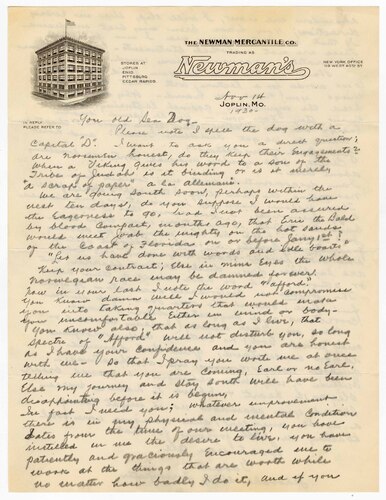 THE NEWMAN MERCANTILE CO.
TRADING AS
Newman's
JOPLIN, MO.
STORES AT
JOPLIN
ENID
PITTSBURG
CEDAR RAPIDS
NEW YORK OFFICE
IN REPLY
PLEASE REFER TO
Nov 14
1930
You old Sea Dog-
Please note I spell the dog with a
Capital D. I want to ask you a direct question;
are Norsemen honest, do they keep their Engagements?
When a Viking gives his word to a son of the
Tribe of Judah, is it binding or is it merely
"a scrap of paper" a la allemaine.
We are going south soon, perhaps within the
next ten days, do you suppose I would have
the Eagerness to go, had I not been assured
by blood Compact, months ago, that Eric the Bald
would meet Joab the mighty on the hot sands
of the Coast of Florida on or before Jany 1st?
"Let us have done with words and idle boast."
Keep your contract; Else in mine Eyes the whole
Norwegian race may be damned forever.
Now in your last I note the word "afford."
You know damn well I would not compromise
you into taking quarters that would make
you uncomfortable Either in mind or body-
You know also, that as long as I live, that
spectre of "Afford" will not disturb you, so long
as I have your Confidence and you are honest
with me. So that I pray you write me at once
telling me that you are coming, Earl or no Earl,
Else my journey and stay south will have been
disappointing before it is begun.
In fact I need you; whatever improvement
there is in my physical and mental Condition
dates from the time of our meeting, you have
instilled in me the desire to live, you have
patiently and graciously Encouraged me to
work at the things that are worth while
no matter how badly I do it, and if you